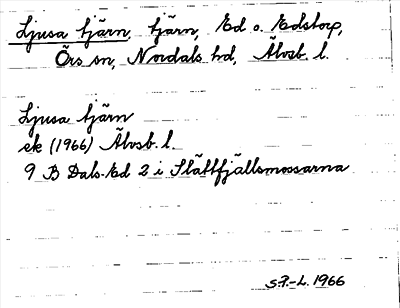 Ljusa tjärn, tjärn, Ed o. Edstorp,
Örs sn, Nordals hd, Älvsb. l.
Ljusa tjärn
ek (1966) Älvsb. l.
9 B Dals-Ed 2 i Slättfjällsmossarna
S.P.-L. 1966